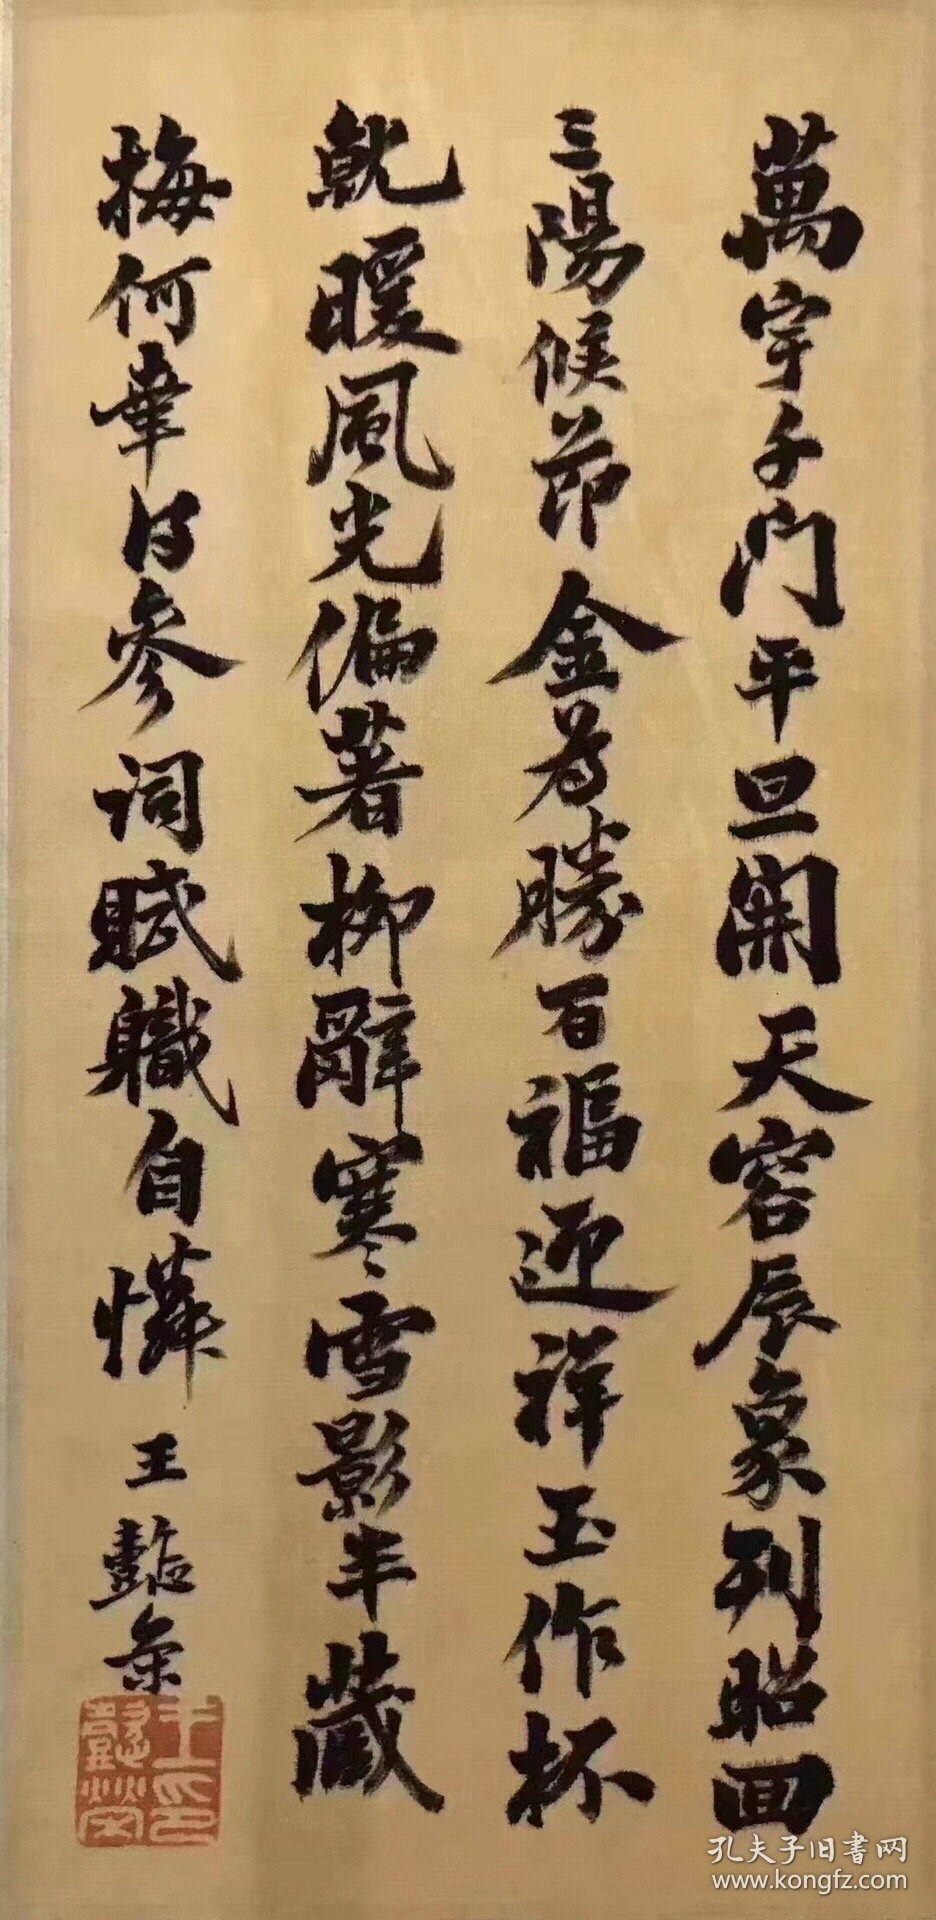 萬宇千門平旦開天容辰象列昭回
三陽候節金為勝百福迎祥玉作杯
就暖風光偏著柳辭寒雪影半藏
梅何幸得參詞賦職自憐
王懿榮
王懿榮印
孔夫子旧书网
www.kongfz.com